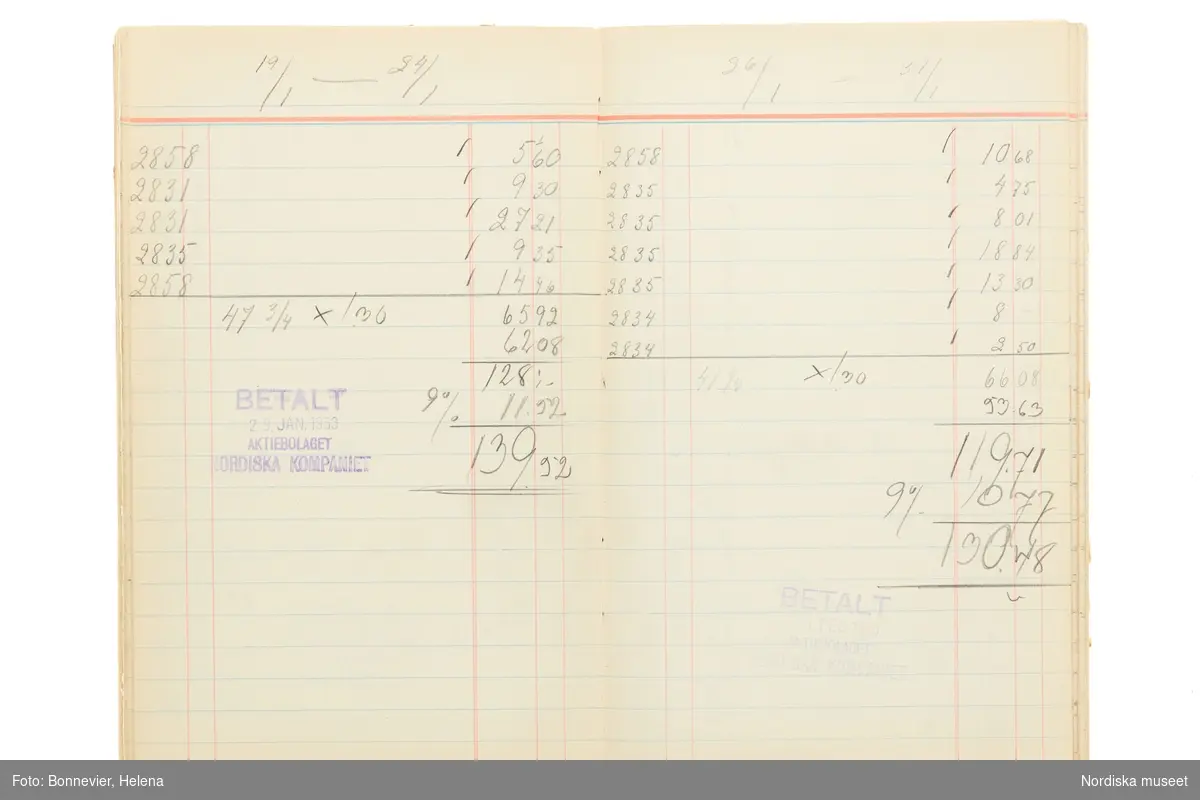 19/1 — 24/1
2858 1 5 60
2831 1 9 30
2831 1 27 21
2835 1 9 35
2858 1 14 46
47 3/4 x 1.30 65 92
62 08
128:-
9% 11.52
139.52
BETALT
JAN. 1953
AKTIEBOLAGET
NORDISKA KOMPANIET
26/1 — 31/1
2858 1 10 68
2835 1 4 75
2835 1 8 01
2835 1 18 84
2835 1 13 30
2834 1 8 -
2834 1 2 50
41 1/4 x 1.30 66 08
53.63
119.71
9% 10.77
130.48
BETALT
AKTIEBOLAGET
NORDISKA KOMPANIET
Foto: Bonnevier, Helena
Nordiska museet